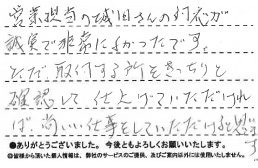 営業担当の城田さんの対応が
誠実で非常によかったです。
ただ取付する所をきっちりと
確認して仕上げていただけれ
ば尚いい仕事をしていただけると思います
●ありがとうございました。今後ともよろしくお願いいたします。
◎皆様から頂いた個人情報は、弊社のサービスのご提供、及びご案内以外には使用いたしません。